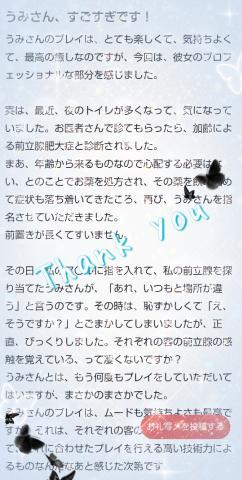 うみさん、すごすぎです！
うみさんのプレイは、とても楽しくて、気持ちよく
て、最高の癒しなのですが、今回は、彼女のプロフ
ェッショナルな部分を感じました。
実は、最近、夜のトイレが多くなって、気になって
いました。お医者さんで診てもらったら、加齢によ
る前立腺肥大症と診断されました。
まあ、年齢から来るものなので心配する必要は
い、とのことでお薬を処方され、その薬を飲 めて
て症状も落ち着いてきたころ、再び、うみさんを指
名させていただきました。
前置きが長くてすいません。
Thank you
その日、私の に指を入れて、私の前立腺を探
り当てたうみさんが、「あれ、いつもと場所が違
う」と言うのです。その時は、恥ずかしくて「え、
そうですか？」とごまかしてしまいましたが、正
直、びっくりしました。それぞれの客の前立腺の感
触を覚えている、って凄くないですか？
うみさんとは、もう何度もプレイをしていただいて
はいますが、まさかのまさかでした。
うみさんのプレイは、ムードも気持ちよさも最高で
すが、それは、それぞれの客の
れに合わせたプレイを行える高い技術力によ
るものなんだなあと感じた次第です
お礼写メを投稿する